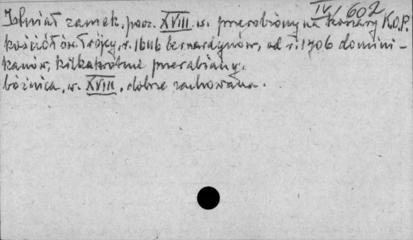 IV/602
Istniał zamek, pocz. XVIII w. przerobiony na koszary K.O.P.
kościół św. Trójcy, r. 1646 bernardynów, od r. 1706 domini-
kanów, kilkakrotnie przerabiany.
bóżnica, w. XVIII, dobrze zachowana.